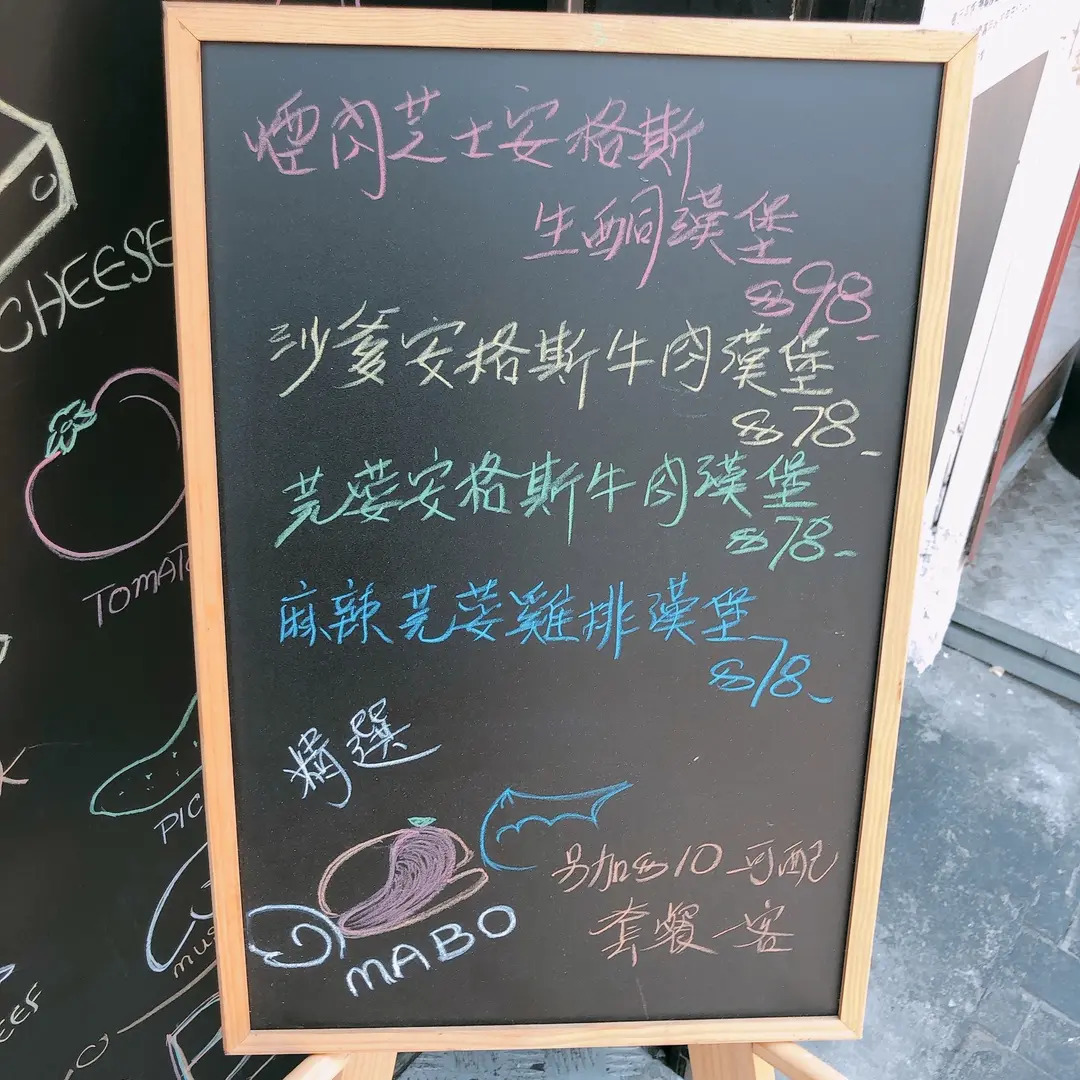 煙肉芝士安格斯
生酮漢堡
$98-
沙爹安格斯牛肉漢堡
$78-
芫荽安格斯牛肉漢堡
$78-
麻辣芫荽雞排漢堡
$78-
精選
另加$10可配
套餐一客
MABO
CHEESE
TOMATO
PIC
MUS